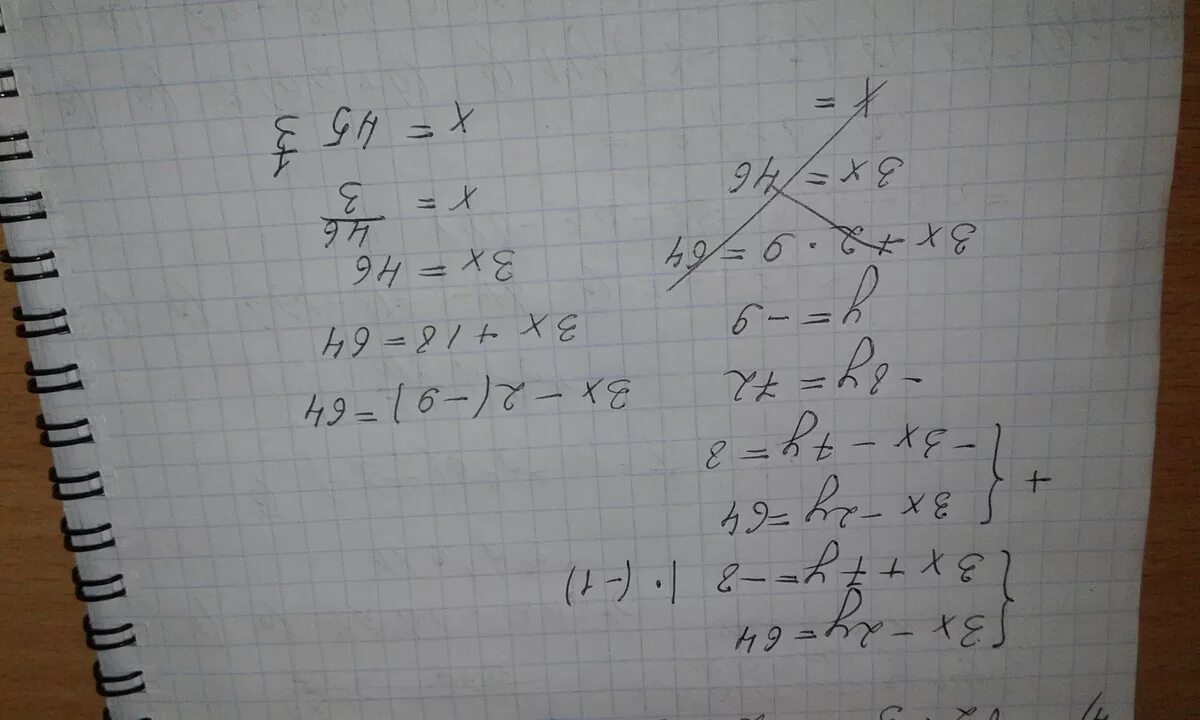 4)
{3x - 2y = 64
3x + 7y = -8 | · (-1)
+ {3x - 2y = 64
-3x - 7y = 8
-8y = 72
y = -9
3x + 2 · 9 = 64
3x = 46
x =
3x - 2(-9) = 64
3x + 18 = 64
3x = 46
x = 46/3
x = 45 1/3